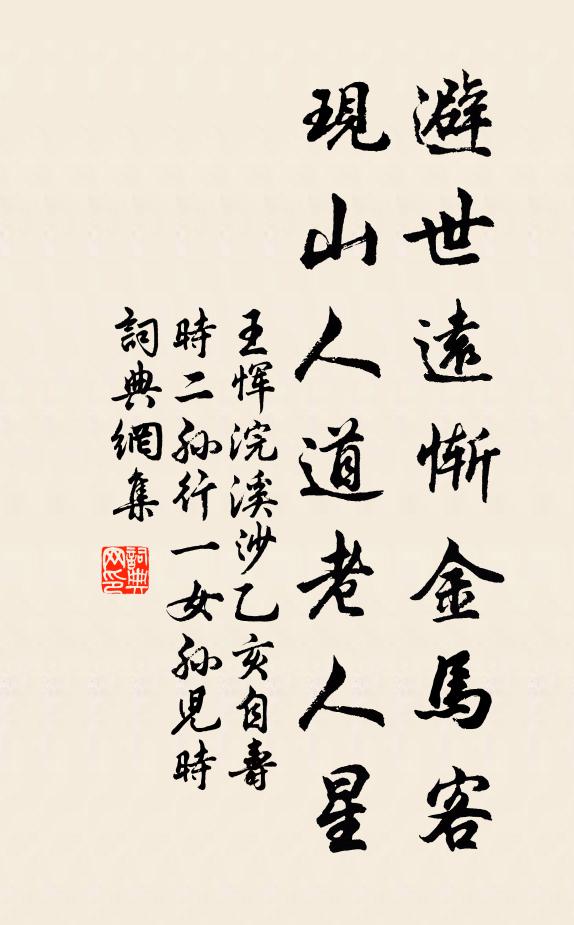 避世遠慚金馬客
現山人道老人星
王惲浣溪沙乙亥自壽
時二孫行一女孫児時
詞典網集
詞典
网印